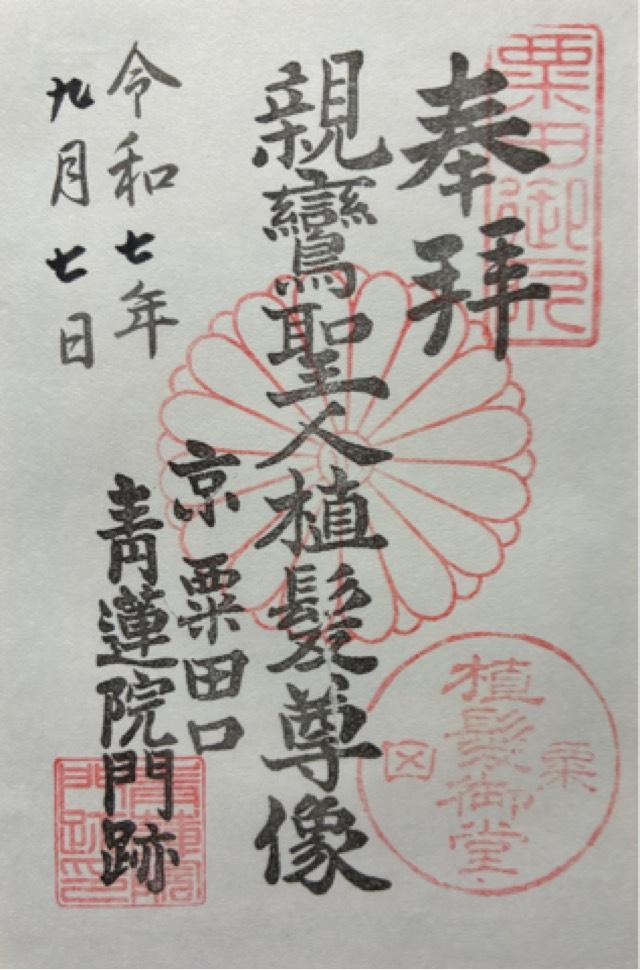 奉拝
親鸞聖人植髪尊像
京 粟田口
青蓮院門跡
令和七年
九月七日
粟田御所
植髪御堂
粟
図
青蓮院門跡印